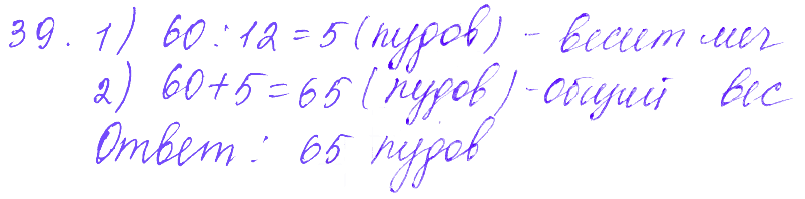 39. 1) 60 : 12 = 5 (пудов) - весит меч
2) 60 + 5 = 65 (пудов) - общий вес
Ответ: 65 пудов